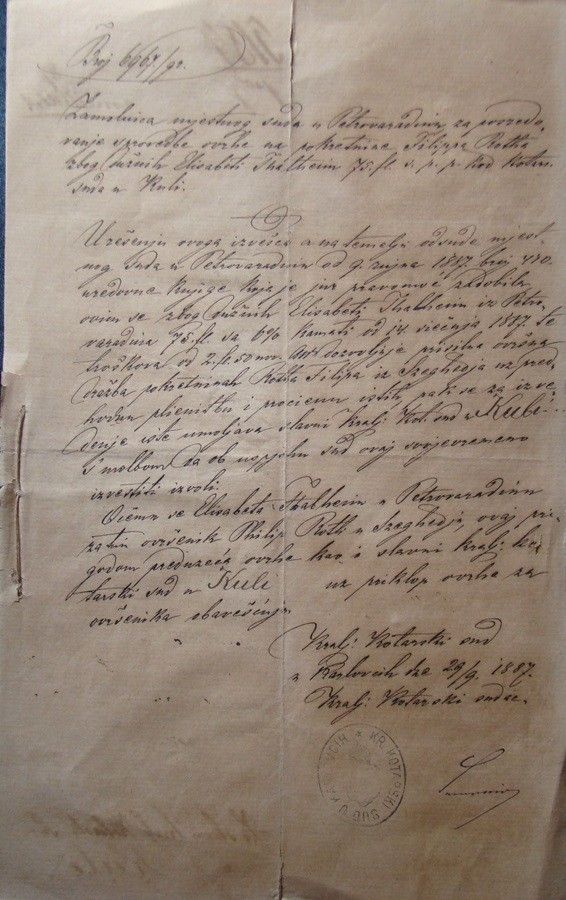 Broj 6967/gr.
Zamolnica mjestnog suda u Petrovaradinu za provedo
vanje sprovedbe ovrhe na pokretnine Filippa Rotha
zbog dužnih Elisabeti Thalheim 75. fl. s. p. p. kod kotar.
suda u Kuli.
U rešenju ovoga izvešća a na temelju odsude mjest-
nog suda u Petrovaradinu od 9. rujna 1887 broj 440
uredovne knjige koja je jur pravomoć zadobila
ovim se zbog dužnih Elisabeti Thalheim iz Petro-
varadina 75. fl. sa 6% kamati od 14. siečnja 1887. te
troškova od 2. fl. 50 nov. dozvoljuje prisilna ovršna
dražba pokretninah Rotha Filipa iz Szeghedja uz pred
hodnu plienitbu i procienu istih, pak se za izve
denje iste umoljava slavni kralj. kot. sud u Kuli
s molbom da ob uspjehu sud ovaj svojevremeno
izvestiti izvoli.
O čemu se Elisabeta Thalheim u Petrovaradinu
zatim ovršenik Philip Roth u Szeghedju, ovaj pri-
godom preduzeća ovrhe kao i slavni kralj. ko-
tarski sud u Kuli uz priklop ovrhe za
ovršenika obavešćuju.
Kralj. Kotarski sud
u Karlovcih dne 29/9. 1887.
Kralj. Kotarski sudac.
KR. KOTARSKI SUD U KARLOVCIH